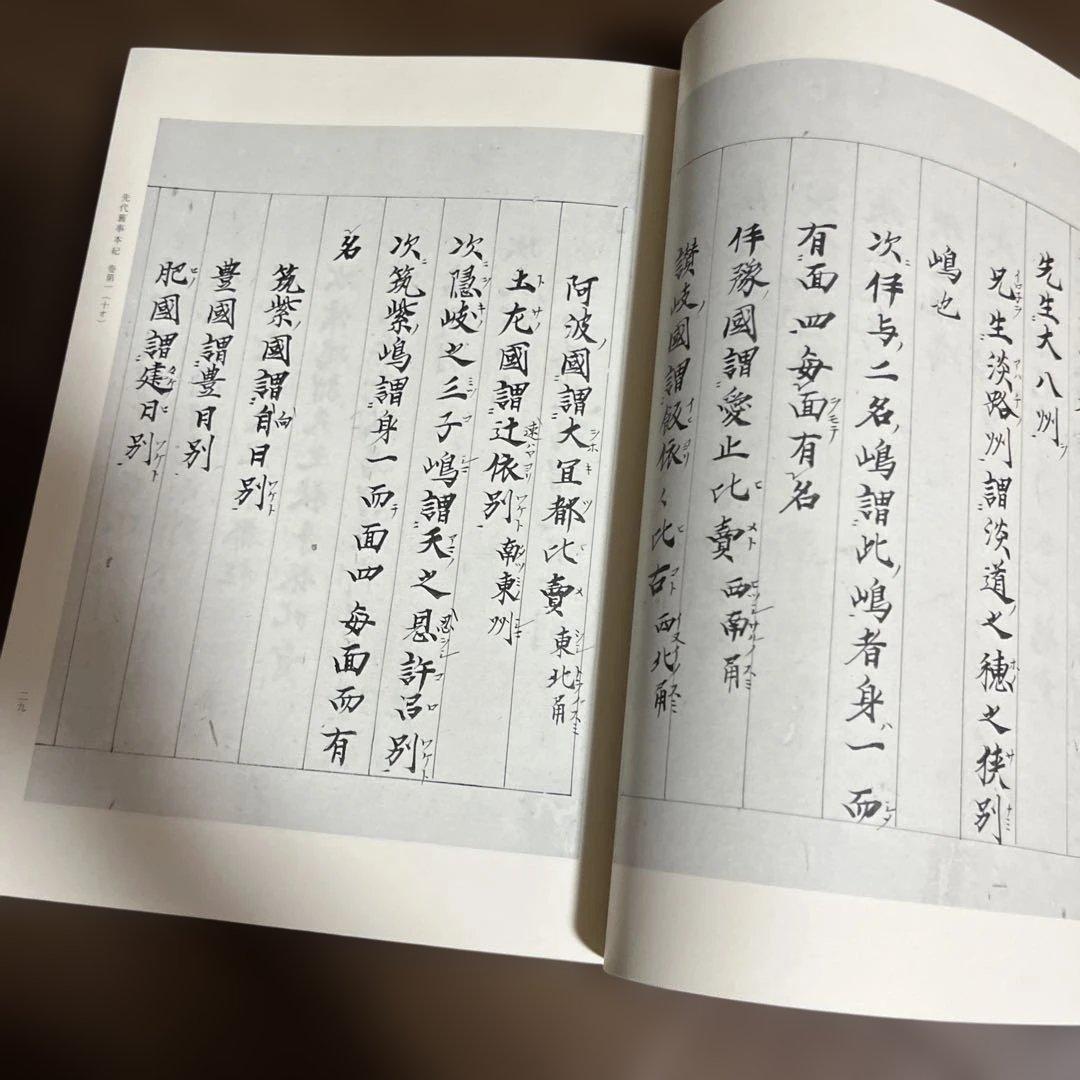 先生大八州
兄生淡路州謂淡道之穂之狭別
嶋也
次伊与二名嶋謂此嶋者身一而
有面四毎面有名
伊豫國謂愛止比賣西南甬
讃岐國謂飯依々比古西北甬
阿波國謂大冝都比賣東北甬
土左國謂辻依別南東州
次隠岐之三子嶋謂天之忍許呂別
次筑紫嶋謂身一而面四毎面而有
名
筑紫國謂自日別
豊國謂豊日別
肥國謂建日別
先代舊事本紀 巻第一(十オ)
二九